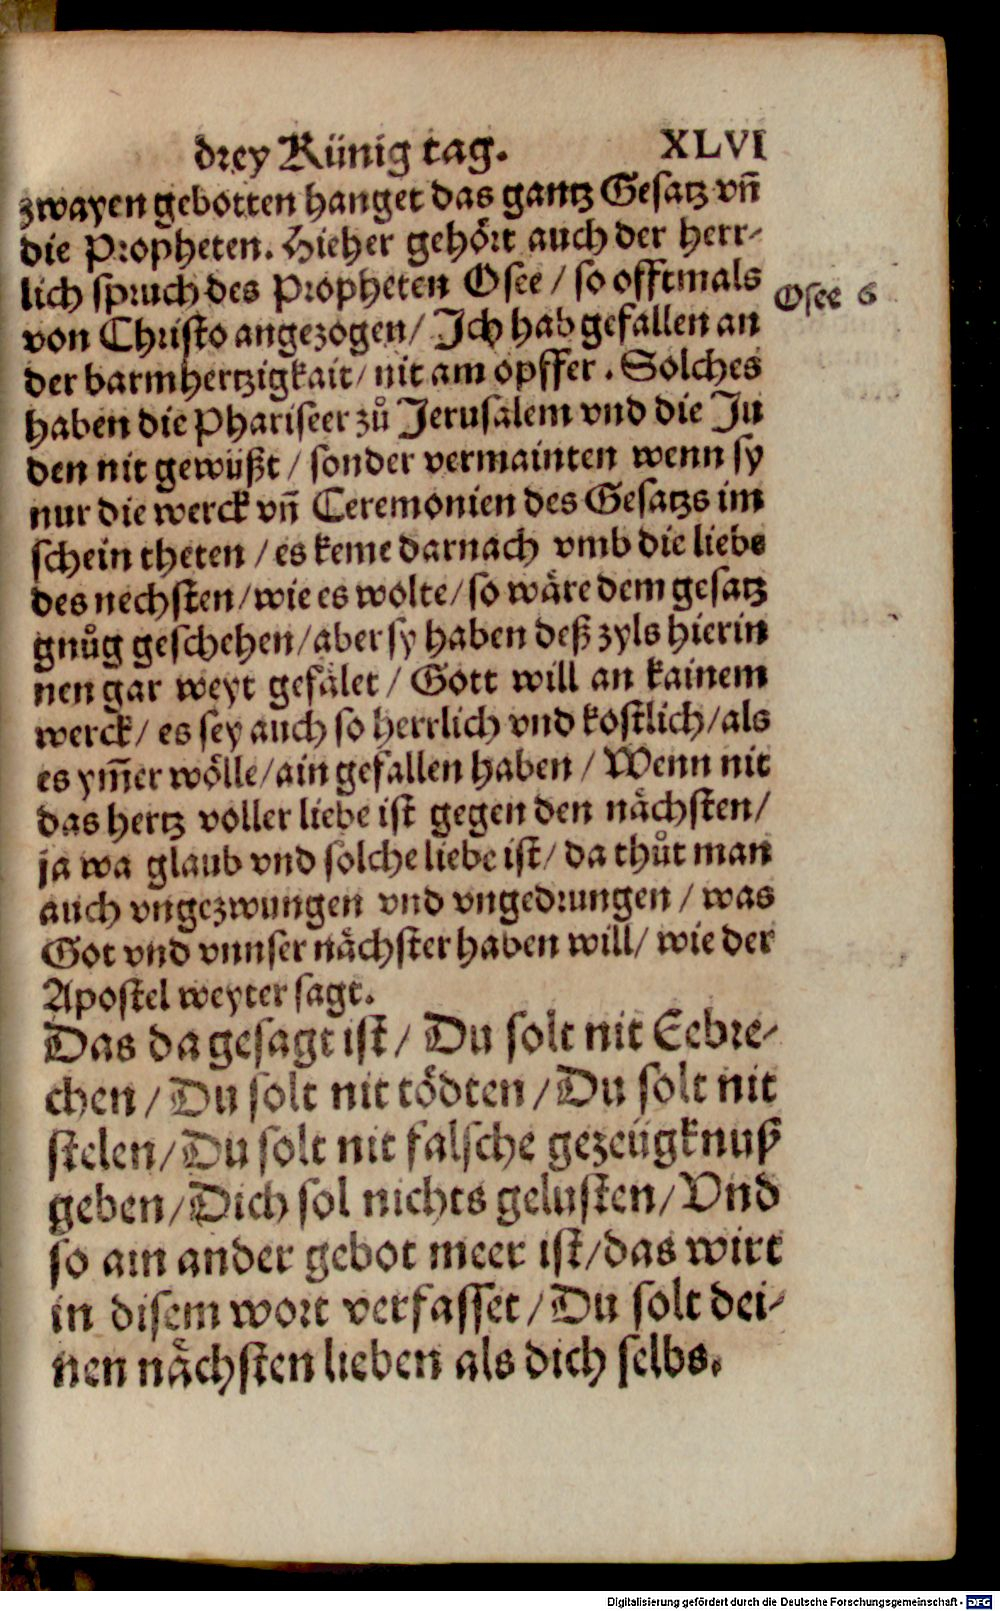 drey Künig tag. XLVI
zwayen gebotten hanget das gantz Gesatz vñ
die Propheten. Hieher gehört auch der herr-
lich spruch des Propheten Osee / so offtmals
Osee 6
von Christo angezogen / Ich hab gefallen an
der barmhertzigkait / nit am opffer. Solches
haben die Phariseer zů Jerusalem vnd die Ju
den nit gewüßt / sonder vermainten wenn sy
nur die werck vñ Ceremonien des Gesatzs im
schein theten / es keme darnach vmb die liebe
des nechsten / wie es wolte / so wäre dem gesatz
gnůg geschehen / aber sy haben deß zyls hierin
nen gar weyt gefälet / Gott will an kainem
werck / es sey auch so herrlich vnd kostlich / als
es ym̃er wölle / ain gefallen haben / Wenn nit
das hertz voller liebe ist gegen den nächsten /
ja wa glaub vnd solche liebe ist / da thůt man
auch vngezwungen vnd vngedrungen / was
Got vnd vnnser nächster haben will / wie der
Apostel weyter sagt.
Das da gesagt ist / Du solt nit Eebre-
chen / Du solt nit tödten / Du solt nit
stelen / Du solt nit falsche gezeügknuß
geben / Dich sol nichts gelusten / Vnd
so ain ander gebot meer ist / das wirt
in disem wort verfasset / Du solt dei-
nen nächsten lieben als dich selbs.
Digitalisierung gefördert durch die Deutsche Forschungsgemeinschaft - DFG